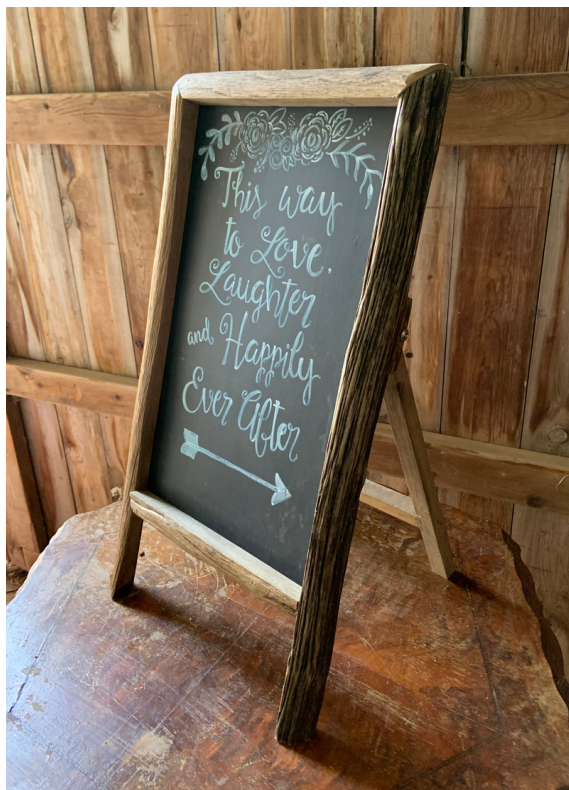 This way
to Love,
Laughter
and Happily
Ever After